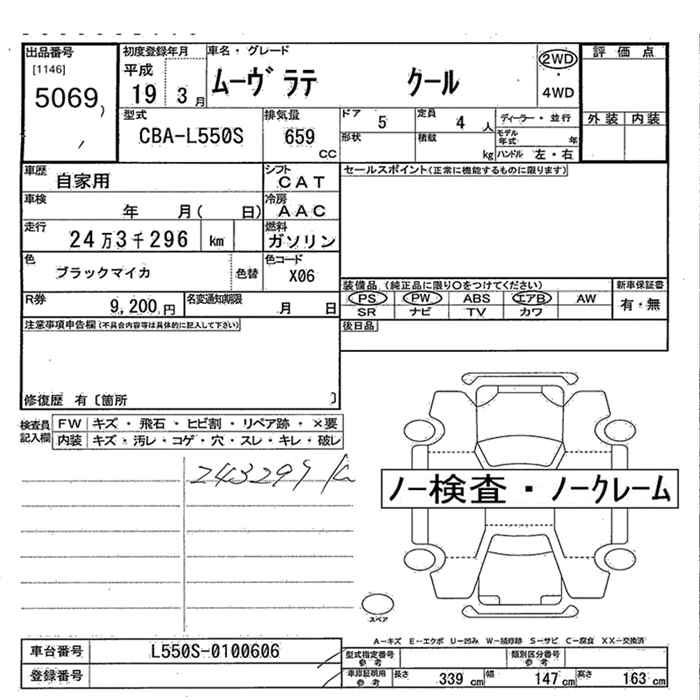 出品番号
[1146]
5069
初度登録年月
平成
19 3 月
車名・グレード
ムーヴ ラテ クール
2WD
・
4WD
評価点
外装 内装
型式
CBA-L550S
排気量
659
CC
ドア
5
定員
4 人
ディーラー・並行
形状
積載
kg
モデル年式 年
ハンドル 左・右
車歴
自家用
シフト
CAT
セールスポイント(正常に機能するものに限ります)
車検
年 月( 日)
冷房
AAC
走行
24万3千296 km
燃料
ガソリン
色
ブラックマイカ
色替
色コード
X06
装備品 (純正品に限り○をつけてください)
新車保証書
PS PW ABS エアB AW
有・無
SR ナビ TV カワ
R券
9,200.円
名変通知期限
月 日
後日品
注意事項申告欄(不具合内容等は具体的に記入して下さい)
修復歴 有〔箇所 〕
検査員記入欄
FW キズ・飛石・ヒビ割・リペア跡・×要
内装 キズ・汚レ・コゲ・穴・スレ・キレ・破レ
243299 K
ノー検査・ノークレーム
スペア
A-キズ E-エクボ U-凹み W-補修跡 S-サビ C-腐食 XX-交換済
車台番号
L550S-0100606
型式指定番号
参考
類別区分番号
参考
登録番号
車庫証明用
参考
長さ 339 cm 幅 147 cm 高さ 163 cm